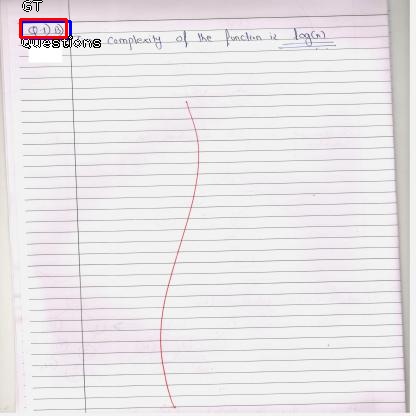 GT
Q.1) B)
Questions complexity of the function is log(n)